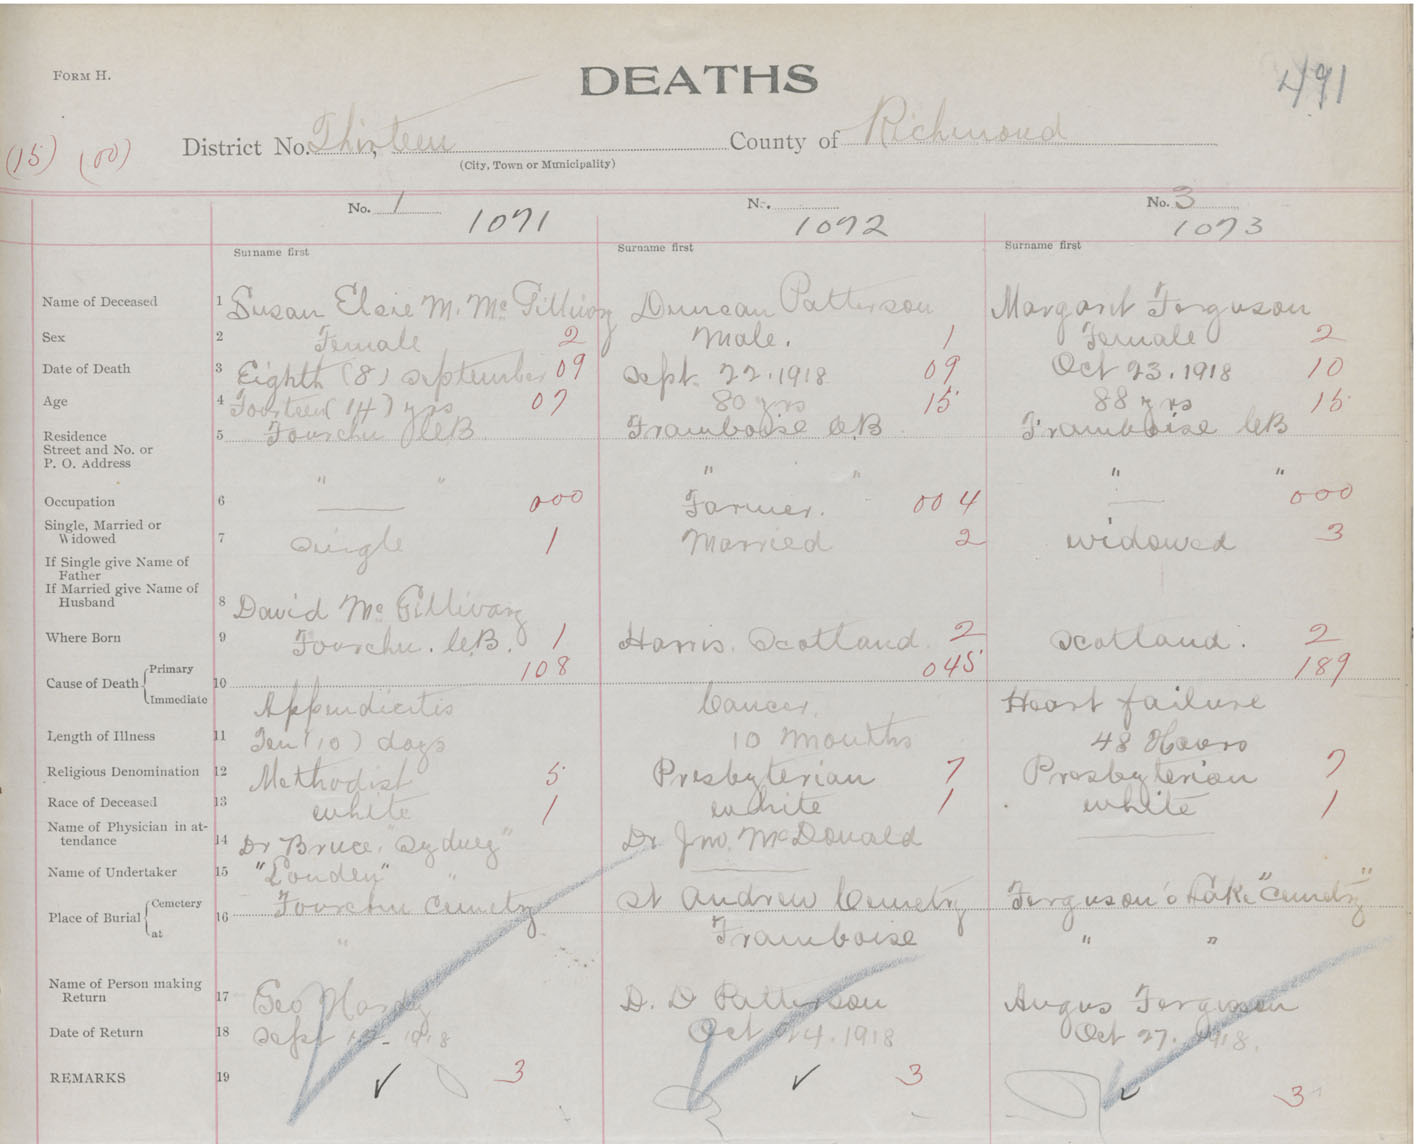 FORM H.
DEATHS
491
(15) (00)
District No. Thirteen County of Richmond
(City, Town or Municipality)
No. 1 No. No. 3
1071 1072 1073
Surname first Surname first Surname first
Name of Deceased 1 Susan Elsie M. McGillivary Duncan Patterson Margaret Ferguson
Sex 2 Female 2 Male. 1 Female 2
Date of Death 3 Eighth (8) September 09 Sept. 22. 1918 09 Oct 23. 1918 10
Age 4 Fourteen (14) yrs 07 80 yrs 15 88 yrs 15
Residence 5 Fourchu C.B. Framboise C.B. Framboise C.B
Street and No. or
P. O. Address " " " " " "
Occupation 6 — 000 Farmer. 004 — 000
Single, Married or
Widowed 7 Single 1 Married 2 widowed 3
If Single give Name of
Father
If Married give Name of
Husband 8 David McGillivary
Where Born 9 Fourchu. C.B. 1 Harris. Scotland. 2 Scotland. 2
Cause of Death Primary 10 108 045 189
Immediate Appendicitis Cancer. Heart failure
Length of Illness 11 Ten (10) days 10 Months 48 Hours
Religious Denomination 12 Methodist 5 Presbyterian 7 Presbyterian 7
Race of Deceased 13 white 1 white 1 white 1
Name of Physician in at-
tendance 14 Dr Bruce. "Sydney" Dr Jno. McDonald —
Name of Undertaker 15 "Louden" " —
Place of Burial Cemetery 16 Fourchu Cemetry St Andrew Cemetry Ferguson's Lake "Cemetry"
at " Framboise " "
Name of Person making
Return 17 Geo Hardy D. D Patterson Angus Ferguson
Date of Return 18 Sept 1918 Oct 24. 1918 Oct 27. 1918.
REMARKS 19 ✓ 3 ✓ 3 ✓ 3